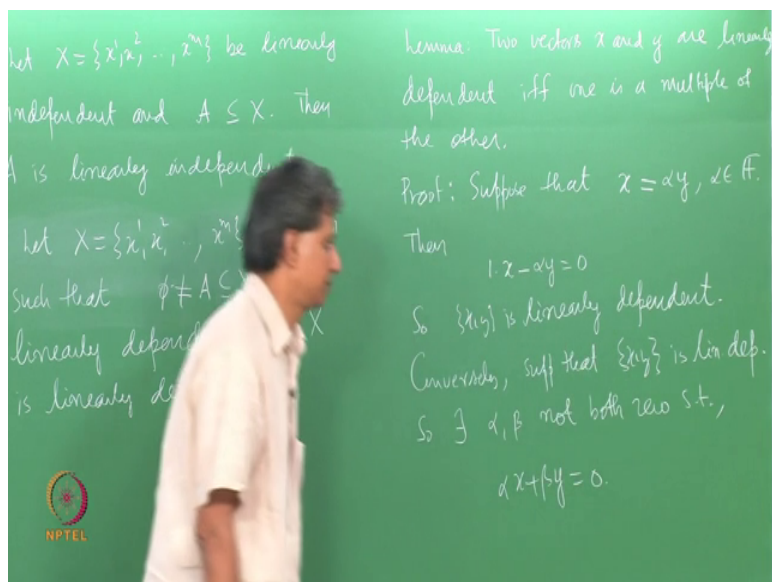 Let X = {x¹, x², .., xᵐ} be linearly
independent and A ⊆ X. Then
A is linearly independent
Let X = {x¹, x², .., xᵐ}
such that φ ≠ A ⊆
linearly depend X
is linearly de
Lemma: Two vectors x and y are linearly
dependent iff one is a multiple of
the other.
Proof: Suppose that x = αy, α ∈ F.
Then
1.x - αy = 0
So {x,y} is linearly dependent.
Conversely, supp that {x,y} is lin dep.
So ∃ α, β not both zero s.t.,
αx + βy = 0.
NPTEL